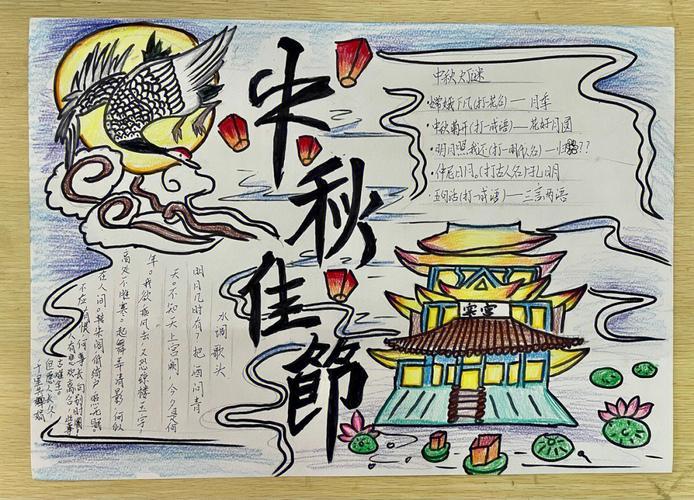 中秋佳節
中秋灯谜
·嫦娥下凡(打花名)——月季
·中秋菊开(打一成语)——花好月圆
·明月照我还(打一明代人名)——归??
·仲尼日月。(打古人名)孔明
·五句话(打一成语)——三言两语
水调歌头
明月几时有?把酒问青
天。不知天上宫阙,今夕是何
年。我欲乘风去 又恐琼楼玉宇,
高处不胜寒。起舞弄清影,何似
在人间。转朱阁低绮户照无眠。
不应有恨,何事长向别时圆
人有悲欢离合,此事
古难全。
但愿人长久,
千里共婵娟